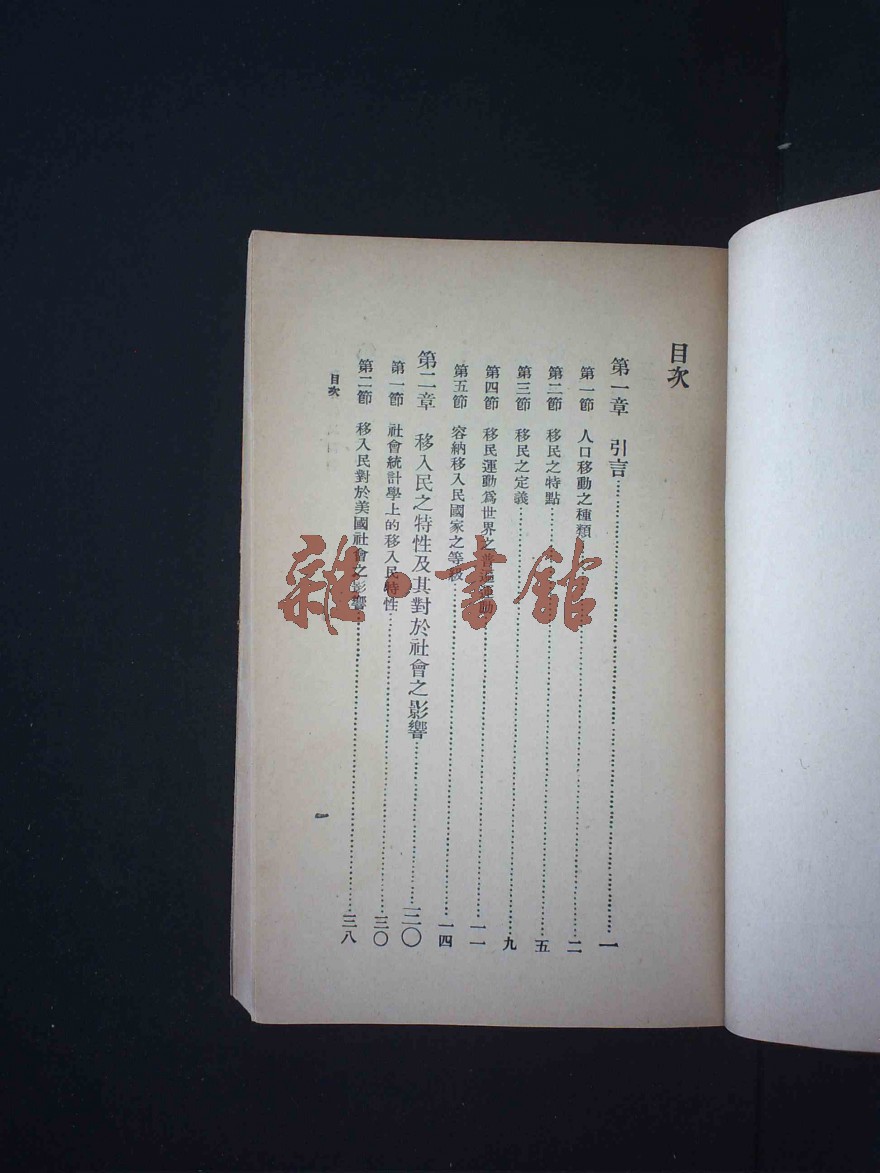 目次
第一章　引言……一
第一節　人口移動之種類……二
第二節　移民之特點……五
第三節　移民之定義……九
第四節　移民運動爲世界之普遍運動……一一
第五節　容納移入民國家之等級……一四
第二章　移入民之特性及其對於社會之影響……三〇
第一節　社會統計學上的移入民特性……三〇
第二節　移入民對於美國社會之影響……三八
目次
一
雜·書館